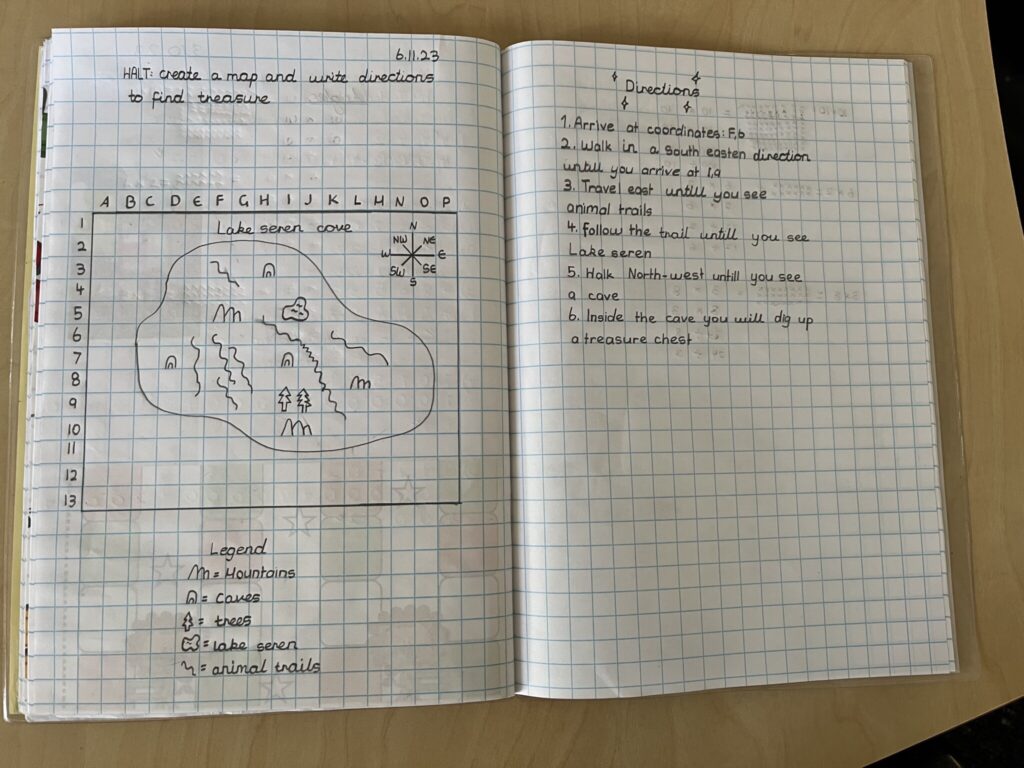 6.11.23
HALT: create a map and write directions
to find treasure
A B C D E F G H I J K L M N O P
1
2
3
4
5
6
7
8
9
10
11
12
13
Lake seren cove
N
NW NE
W E
SW SE
S
Legend
= Mountains
= caves
= trees
= lake seren
= animal trails
Directions
1. Arrive at coordinates: F,6
2. Walk in a south easten direction
untill you arrive at I,9
3. Travel east untill you see
animal trails
4. follow the trail untill you see
Lake seren
5. Walk North-west untill you see
a cave
6. Inside the cave you will dig up
a treasure chest